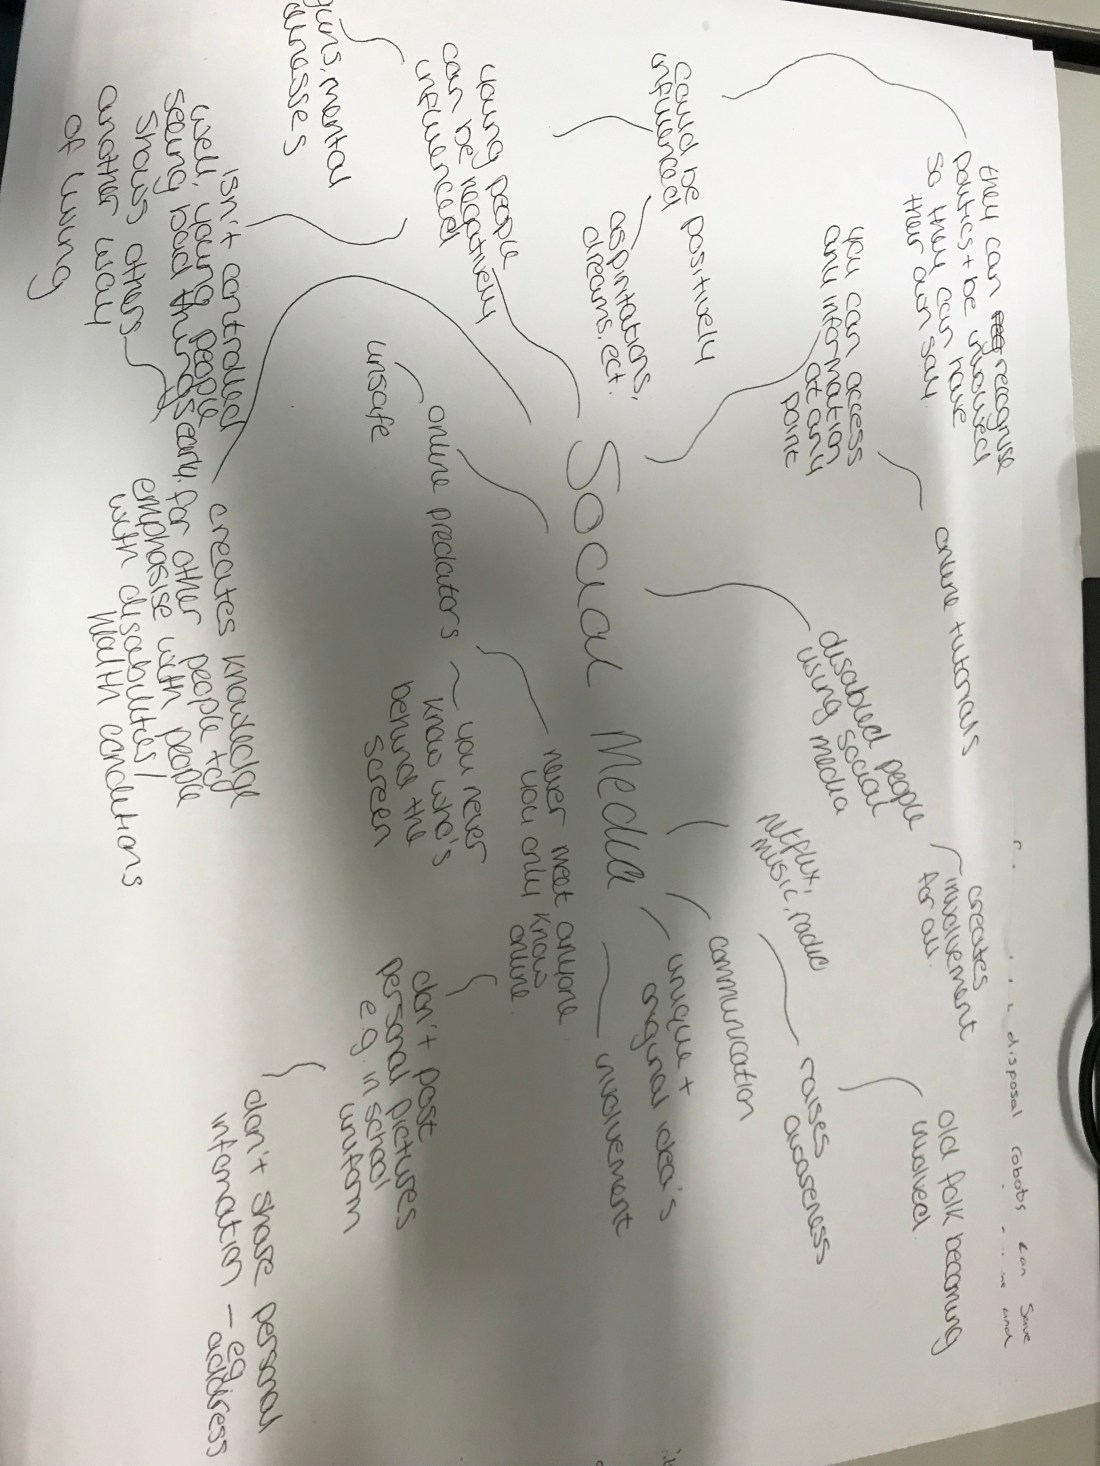 they can recognise
politics + be involved
so they can have
their own say.
you can access
any information
at any
point
online tutorials
could be positively
influenced
aspirations,
dreams, ect.
young people
can be negatively
influenced
guns, mental
illnesses
isn't controlled
well, young people
seeing bad things early,
shows others
another way
of living
creates knowledge
for other people to
emphasise with people
with disabilities/
health conditions
unsafe
online predators
you never
know who's
behind the
screen
never meet anyone
you only know
online
don't post
personal pictures
e.g. in school
uniform
don't share personal
information - eg
address
Social Media
disabled people
using social
media
creates
involvement
for all.
netflix,
music, radio
communication
unique +
original idea's
involvement
raises
awareness
old folk becoming
involved
disposal robots can save
and